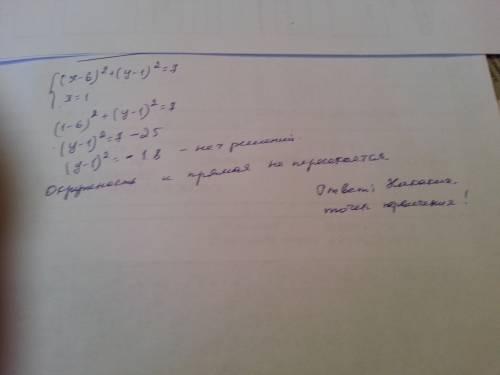 {(x-6)²+(y-1)²=7
x=1
(1-6)²+(y-1)²=7
(y-1)²=7-25
(y-1)²=-18 - нет решений.
Окружность и прямая не пересекаются
Ответ: Никаких
точек !